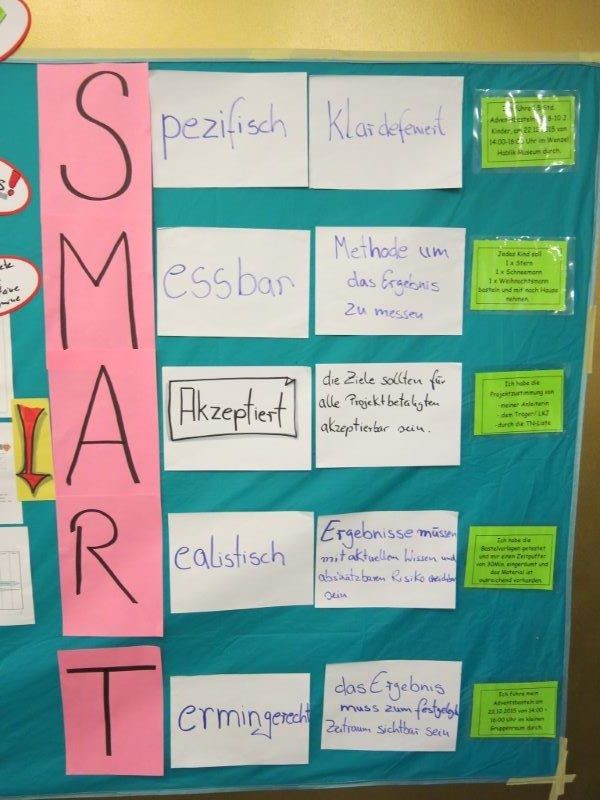 S
pezifisch
Klar defeniert
Kinder, am 22.12.2015 von
14:00-16:00 Uhr im Wenzel
Hablik Museum durch.
M
essbar
Methode um
das Ergebnis
zu messen
Jedes Kind soll
1 x Stern
1 x Schneemann
1 x Weihnachtsmann
basteln und mit nach Hause
nehmen.
A
Akzeptiert
die Ziele sollten für
alle Projektbetailigten
akzeptierbar sein.
Ich habe die
Projektzustimmung von
-meiner Anleiterin
- dem Träger/ LKJ
-durch die TN-Liste
R
ealistisch
Ergebnisse müssen
mit aktuellen Wissen und
absätzbaren Risiko
sein
Ich habe die
Bastelvorlagen getestet
und mir einen Zeitpuffer
von 30Min. eingeräumt und
das Material ist
ausreichend vorhanden.
T
ermingerecht
das Ergebnis
muss zum
Zeitraum sichtbar sein
Ich führe mein
Adventsbasteln am
22.12.2015 von 14:00 -
16:00 Uhr im kleinen
Gruppenraum durch.